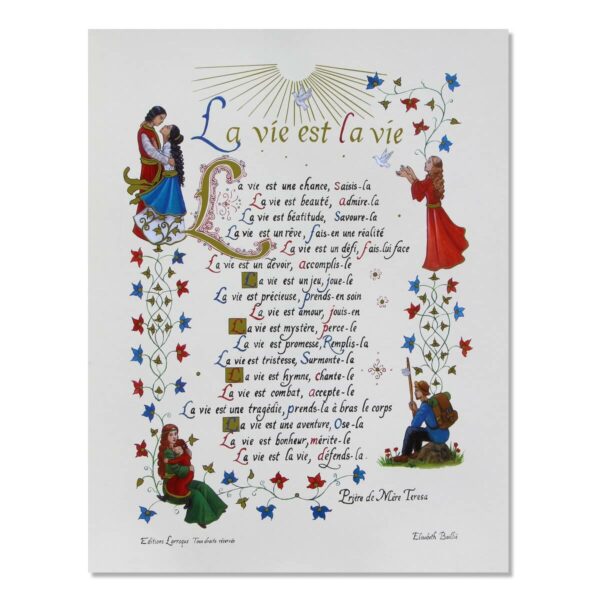 La vie est la vie
La vie est une chance, saisis-la
La vie est beauté, admire-la
La vie est béatitude, Savoure-la
La vie est un rêve, fais-en une réalité
La vie est un défi, fais-lui face
La vie est un devoir, accomplis-le
La vie est un jeu, joue-le
La vie est précieuse, prends-en soin
La vie est amour, jouis-en
La vie est mystère, perce-le
La vie est promesse, Remplis-la
La vie est tristesse, Surmonte-la
La vie est hymne, chante-le
La vie est combat, accepte-le
La vie est une tragédie, prends-la à bras le corps
La vie est une aventure, Ose-la
La vie est bonheur, mérite-le
La vie est la vie, défends-la.
Prière de Mère Teresa
Editions Larroque Tous droits réservés
Elisabeth